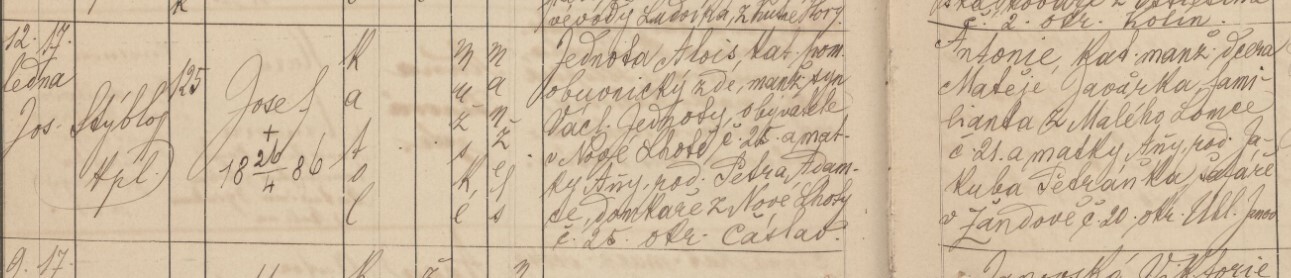 vévody Ludvíka, z hory
č. 2. okr. Kolín.
12. 17.
ledna
Jos. Stýblo
kpl.
125
Josef
+
18 26/4 86
katol
mužské
manžels
Jednota Alois, kat. pom.
obuvnický zde, manž. syn
Václ. Jednoty, obyvatele
v Nové Lhotě č. 25. a mat-
ky Anny, rod. Petra Adam-
ce, domkáře z Nové Lhoty
č. 25. okr. Čáslav.
Antonie, kat. manž. dcera
Matěje Javůrka, fami-
lianta z Malého Lomce
č. 21. a matky Anny, rod. Ja-
kuba Petráňka
v Žandově č. 20. okr. Uhl. Janov
9. 17.
Viktorie